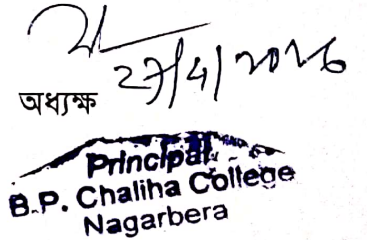 অধ্যক্ষ
Principal
B.P. Chaliha College
Nagarbera